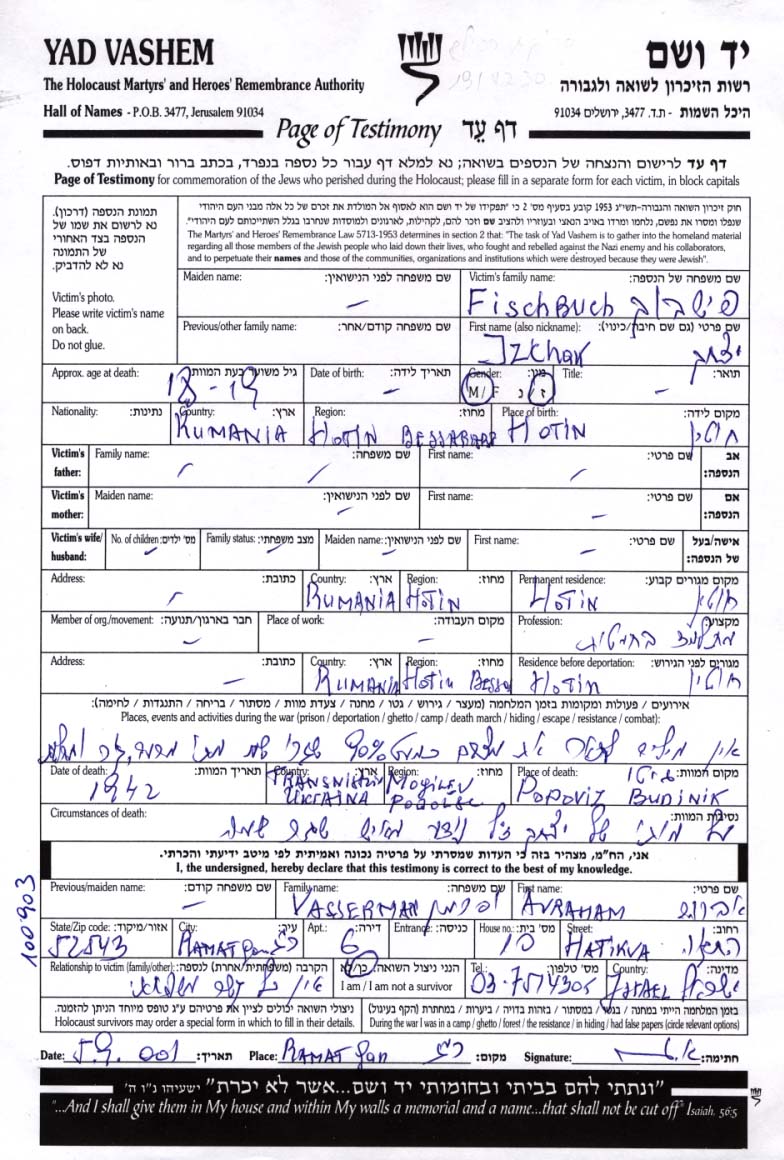 YAD VASHEM
The Holocaust Martyrs' and Heroes' Remembrance Authority
Hall of Names - P.O.B. 3477, Jerusalem 91034
יד ושם
רשות הזיכרון לשואה ולגבורה
היכל השמות - ת.ד. 3477, ירושלים 91034
Page of Testimony דף עֵד
דף עד לרישום והנצחה של הנספים בשואה; נא למלא דף עבור כל נספה בנפרד, בכתב ברור ובאותיות דפוס.
Page of Testimony for commemoration of the Jews who perished during the Holocaust; please fill in a separate form for each victim, in block capitals
תמונת הנספה (דרכון).
נא לרשום את שמו של
הנספה בצד האחורי
של התמונה
נא לא להדביק.
Victim's photo.
Please write victim's name
on back.
Do not glue.
חוק זיכרון השואה והגבורה-תשי"ג 1953 קובע בסעיף מס' 2 כי "תפקידו של יד ושם הוא לאסוף אל המולדת את זכרם של כל אלה מבני העם היהודי
שנפלו ומסרו את נפשם, נלחמו ומרדו באויב הנאצי ובעוזריו ולהציב שם וזכר להם, לקהילות, לארגונים ולמוסדות שנחרבו בגלל השתייכותם לעם היהודי".
The Martyrs' and Heroes' Remembrance Law 5713-1953 determines in section 2 that: "The task of Yad Vashem is to gather into the homeland material
regarding all those members of the Jewish people who laid down their lives, who fought and rebelled against the Nazi enemy and his collaborators,
and to perpetuate their names and those of the communities, organizations and institutions which were destroyed because they were Jewish".
Maiden name: שם משפחה לפני הנישואין:
Victim's family name: שם משפחה של הנספה:
Fischbuch פישבוך
Previous/other family name: שם משפחה קודם/אחר:
First name (also nickname): שם פרטי (גם שם חיבה/כינוי):
Izchak יצחק
Approx. age at death: גיל משוער בעת המוות:
18-19
Date of birth: תאריך לידה:
Gender: מין:
M / F ז / נ
Title: תואר:
Nationality: נתינות:
Country: ארץ:
RUMANIA
Region: מחוז:
HOTIN BESSARABE
Place of birth: מקום לידה:
HOTIN חוטין
Victim's father:
Family name: שם משפחה:
First name: שם פרטי:
אב הנספה:
Victim's mother:
Maiden name: שם לפני הנישואין:
First name: שם פרטי:
אם הנספה:
Victim's wife/husband:
No. of children: מס' ילדים:
Family status: מצב משפחתי:
Maiden name: שם לפני הנישואין:
First name: שם פרטי:
אישה/בעל של הנספה:
Address: כתובת:
Country: ארץ:
RUMANIA
Region: מחוז:
HOTIN
Permanent residence: מקום מגורים קבוע:
HOTIN חוטין
Member of org./movement: חבר בארגון/תנועה:
Place of work: מקום העבודה:
Profession: מקצוע:
Address: כתובת:
Country: ארץ:
RUMANIA
Region: מחוז:
Hotin Bessa
Residence before deportation: מגורים לפני הגירוש:
Hotin חוטין
אירועים / פעולות ומקומות בזמן המלחמה (מעצר / גירוש / גטו / מחנה / צעדת מוות / מסתור / בריחה / התנגדות / לחימה):
Places, events and activities during the war (prison / deportation / ghetto / camp / death march / hiding / escape / resistance / combat):
90%
Date of death: תאריך המוות:
1942
Country: ארץ:
TRANSNISTRIA
UKRAINA
Region: מחוז:
MOGILEV
PODOLSC
Place of death: מקום המוות:
POPOVIZ BUDINIK
Circumstances of death: נסיבות המוות:
אני, החח"מ, מצהיר בזה כי העדות שמסרתי על פרטיה נכונה ואמיתית לפי מיטב ידיעתי והכרתי.
I, the undersigned, hereby declare that this testimony is correct to the best of my knowledge.
Previous/maiden name: שם משפחה קודם:
Family name: שם משפחה:
VASSERMAN וסרמן
First name: שם פרטי:
AVRAHAM אברהם
State/Zip code: אזור/מיקוד:
52543
City: עיר:
RAMAT gan ר"ג
Apt.: דירה:
6
Entrance: כניסה:
House no.: מס' בית:
Street: רחוב:
HATIKVA התקוה
Relationship to victim (family/other): הקרבה (משפחתית/אחרת) לנספה:
הנני ניצול השואה: כן/לא
I am / I am not a survivor
Tel.: מס' טלפון:
03-7514305
Country: מדינה:
ISRAEL ישראל
ניצולי השואה יכולים לציין את פרטיהם ע"ג טופס מיוחד הניתן להזמנה.
Holocaust survivors may order a special form in which to fill in their details.
בזמן המלחמה הייתי במחנה / בגטו / במסתור / בזהות בדויה / ביערות / במחתרת (הקף בעיגול)
During the war I was in a camp / ghetto / forest / the resistance / in hiding / had false papers (circle relevant options)
Date: תאריך:
Place: RAMAT gan ר"ג מקום:
Signature: חתימה:
100903
"ונתתי להם בביתי ובחומותי יד ושם...אשר לא יכרת" ישעיהו נ"ו ה'
"...And I shall give them in My house and within My walls a memorial and a name...that shall not be cut off" Isaiah, 56:5